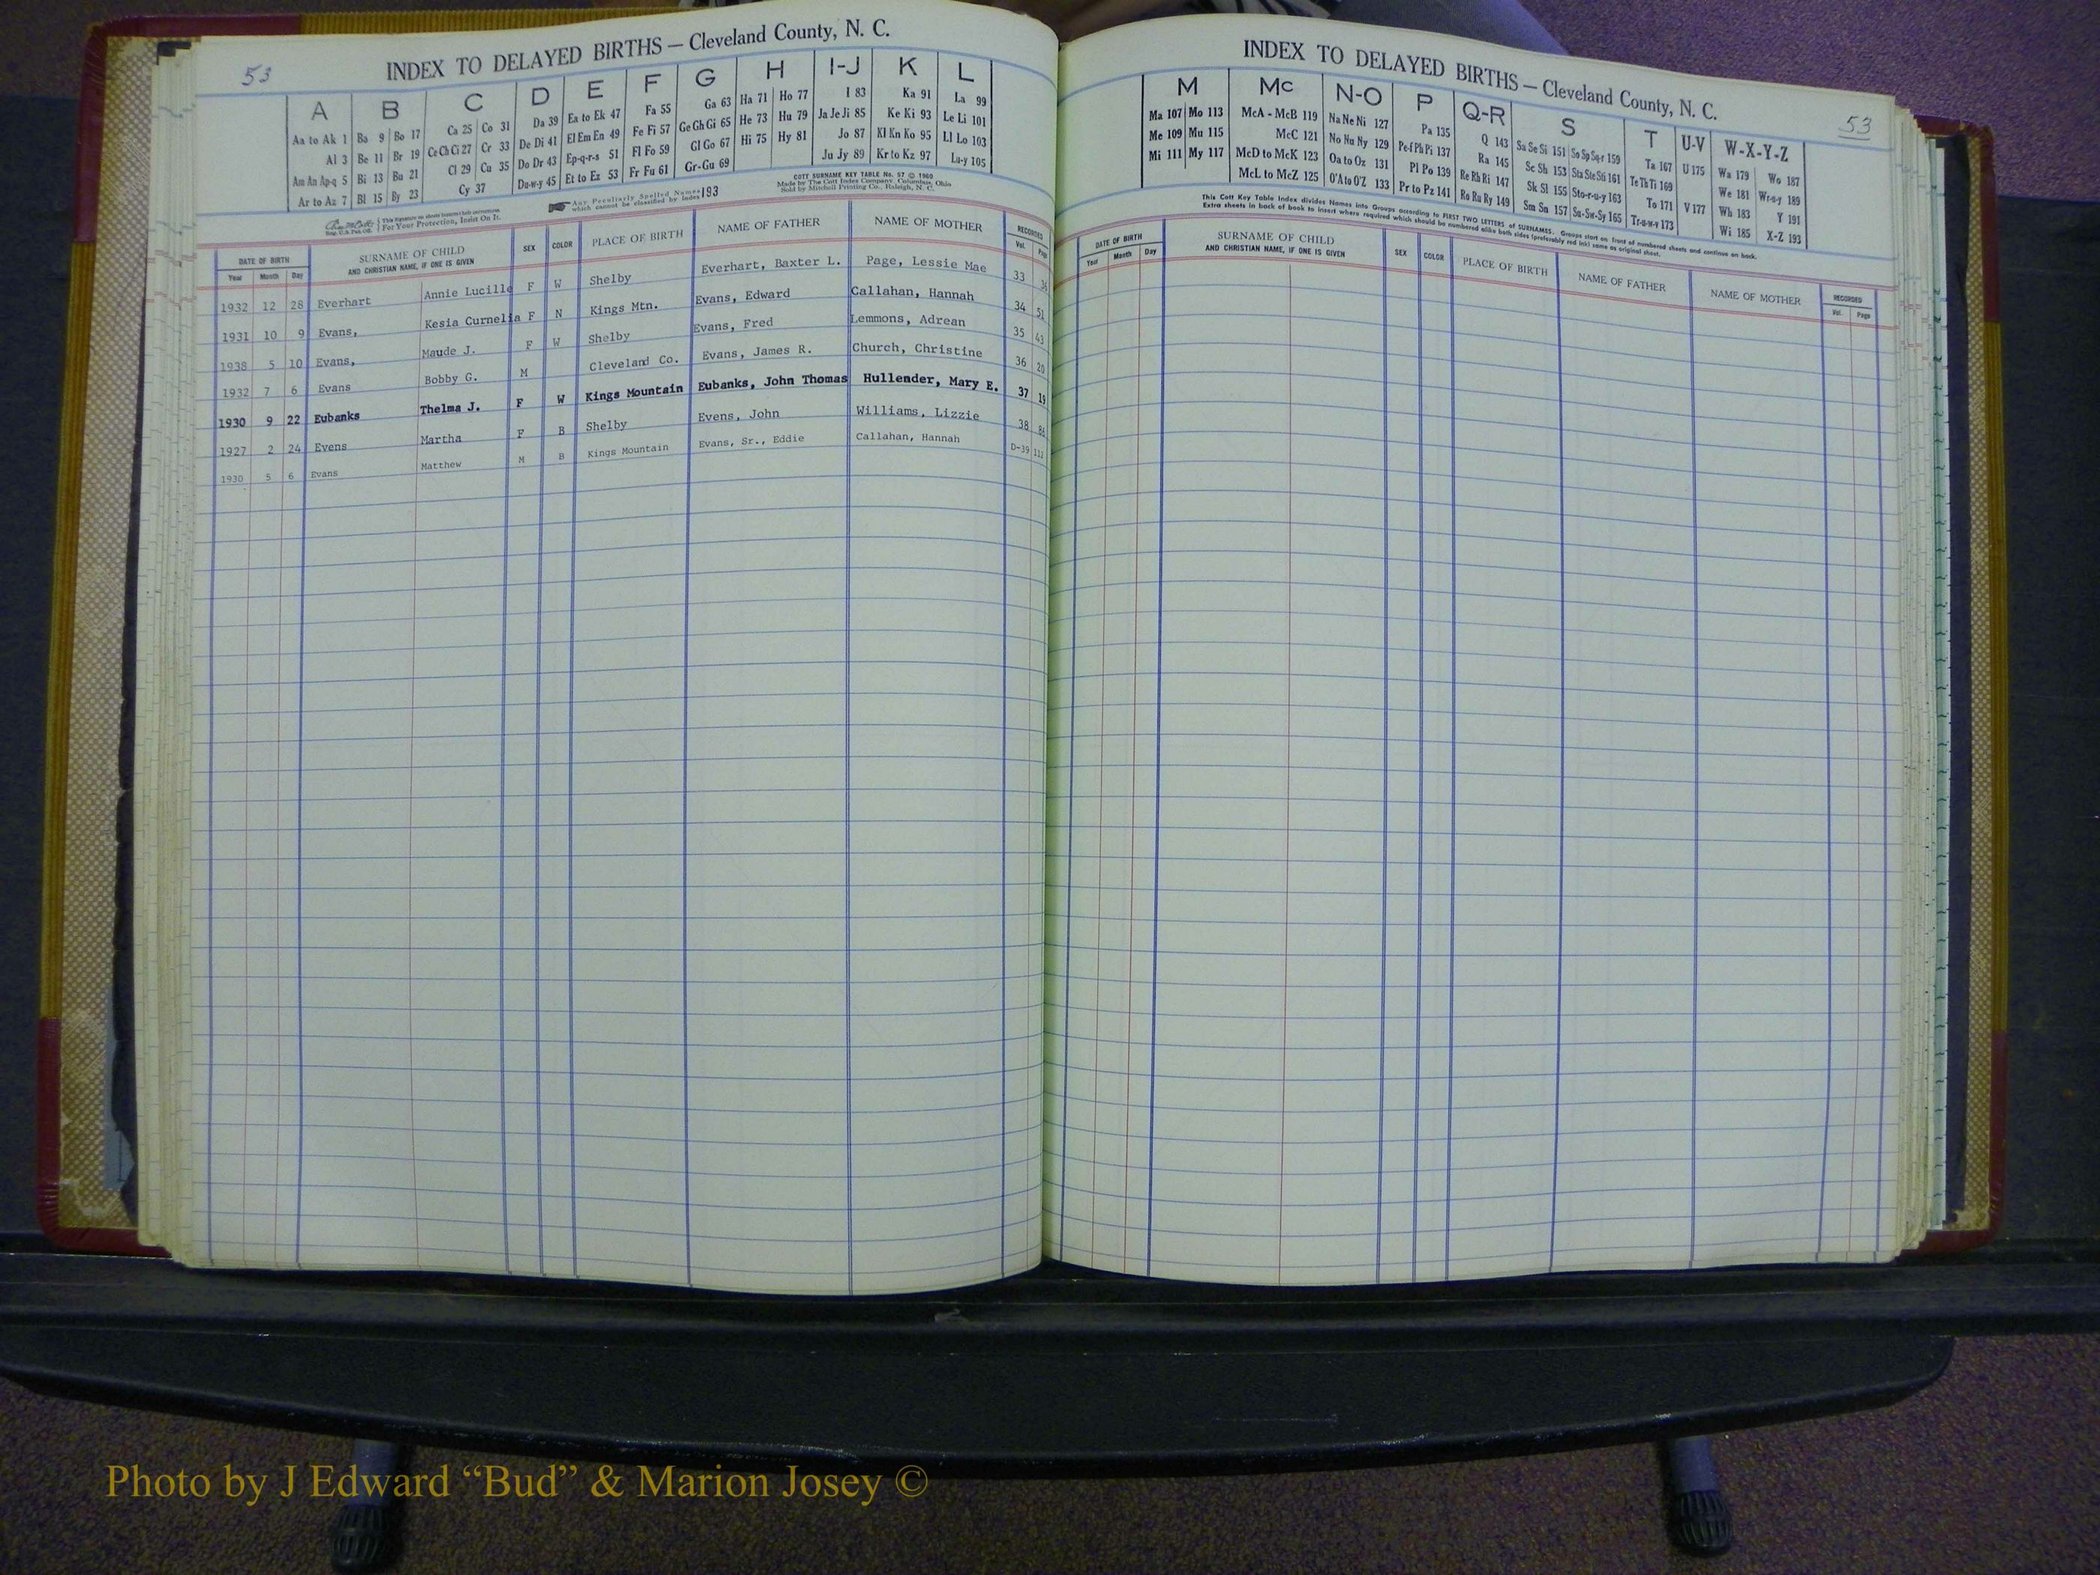 53
INDEX TO DELAYED BIRTHS — Cleveland County, N. C.
A B C D E F G H I-J K L
Aa to Ak 1 Ba 9 Bo 17 Ca 25 Co 31 Da 39 Ea to Ek 47 Fa 55 Ga 63 Ha 71 Ho 77 I 83 Ka 91 La 99
Al 3 Be 11 Br 19 Ce Ch Ci 27 Cr 33 De Di 41 El Em En 49 Fe Fi 57 Ge Gh Gi 65 He 73 Hu 79 Ja Je Ji 85 Ke Ki 93 Le Li 101
Am An Ap-q 5 Bi 13 Bu 21 Cl 29 Cu 35 Do Dr 43 Ep-q-r-s 51 Fl Fo 59 Gl Go 67 Hi 75 Hy 81 Jo 87 Kl Kn Ko 95 Ll Lo 103
Ar to Az 7 Bl 15 By 23 Cy 37 Du-w-y 45 Et to Ez 53 Fr Fu 61 Gr-Gu 69 Ju Jy 89 Kr to Kz 97 Lu-y 105
This signature on sheets beneath help customers.
For Your Protection, Insist On It.
Reg. U.S. Pat. Off.
Any Peculiarly Spelled Names
which cannot be classified by index 193
COTT SURNAME KEY TABLE No. 57 © 1960
Made by The Cott Index Company, Columbus, Ohio
Sold by Mitchell Printing Co., Raleigh, N. C.
DATE OF BIRTH SURNAME OF CHILD SEX COLOR PLACE OF BIRTH NAME OF FATHER NAME OF MOTHER RECORDED
Year Month Day AND CHRISTIAN NAME, IF ONE IS GIVEN Vol. Page
1932 12 28 Everhart Annie Lucille F W Shelby Everhart, Baxter L. Page, Lessie Mae 33
1931 10 9 Evans, Kesia Curnelia F N Kings Mtn. Evans, Edward Callahan, Hannah 34 51
1938 5 10 Evans, Maude J. F W Shelby Evans, Fred Lemmons, Adrean 35 43
1932 7 6 Evans Bobby G. M Cleveland Co. Evans, James R. Church, Christine 36 20
1930 9 22 Eubanks Thelma J. F W Kings Mountain Eubanks, John Thomas Hullender, Mary E. 37 19
1927 2 24 Evens Martha F B Shelby Evens, John Williams, Lizzie 38 86
1930 5 6 Evans Matthew M B Kings Mountain Evans, Sr., Eddie Callahan, Hannah D-39 112
INDEX TO DELAYED BIRTHS — Cleveland County, N. C.
53
M Mc N-O P Q-R S T U-V W-X-Y-Z
Ma 107 Mo 113 McA - McB 119 Na Ne Ni 127 Pa 135 Q 143 Sa Se Si 151 So Sp Sq-r 159 Ta 167 U 175 Wa 179 Wo 187
Me 109 Mu 115 McC 121 No Nu Ny 129 Pe-f Ph Pi 137 Ra 145 Sc Sh 153 Sta Ste Sti 161 Te Th Ti 169 We 181 Wr-u-y 189
Mi 111 My 117 McD to McK 123 Oa to Oz 131 Pl Po 139 Re Rh Ri 147 Sk Sl 155 Sto-r-u-y 163 To 171 V 177 Wh 183 Y 191
McL to McZ 125 O'A to O'Z 133 Pr to Pz 141 Ro Ru Ry 149 Sm Sn 157 Su-Sw-Sy 165 Tr-u-w-y 173 Wi 185 X-Z 193
This Cott Key Table Index divides Names into Groups according to FIRST TWO LETTERS of SURNAMES. Groups start on front of numbered sheets and continue on back.
Extra sheets in back of book to insert where required which should be numbered alike both sides (preferably red ink) same as original sheet.
DATE OF BIRTH SURNAME OF CHILD SEX COLOR PLACE OF BIRTH NAME OF FATHER NAME OF MOTHER RECORDED
Year Month Day AND CHRISTIAN NAME, IF ONE IS GIVEN Vol. Page
Photo by J Edward “Bud” & Marion Josey ©